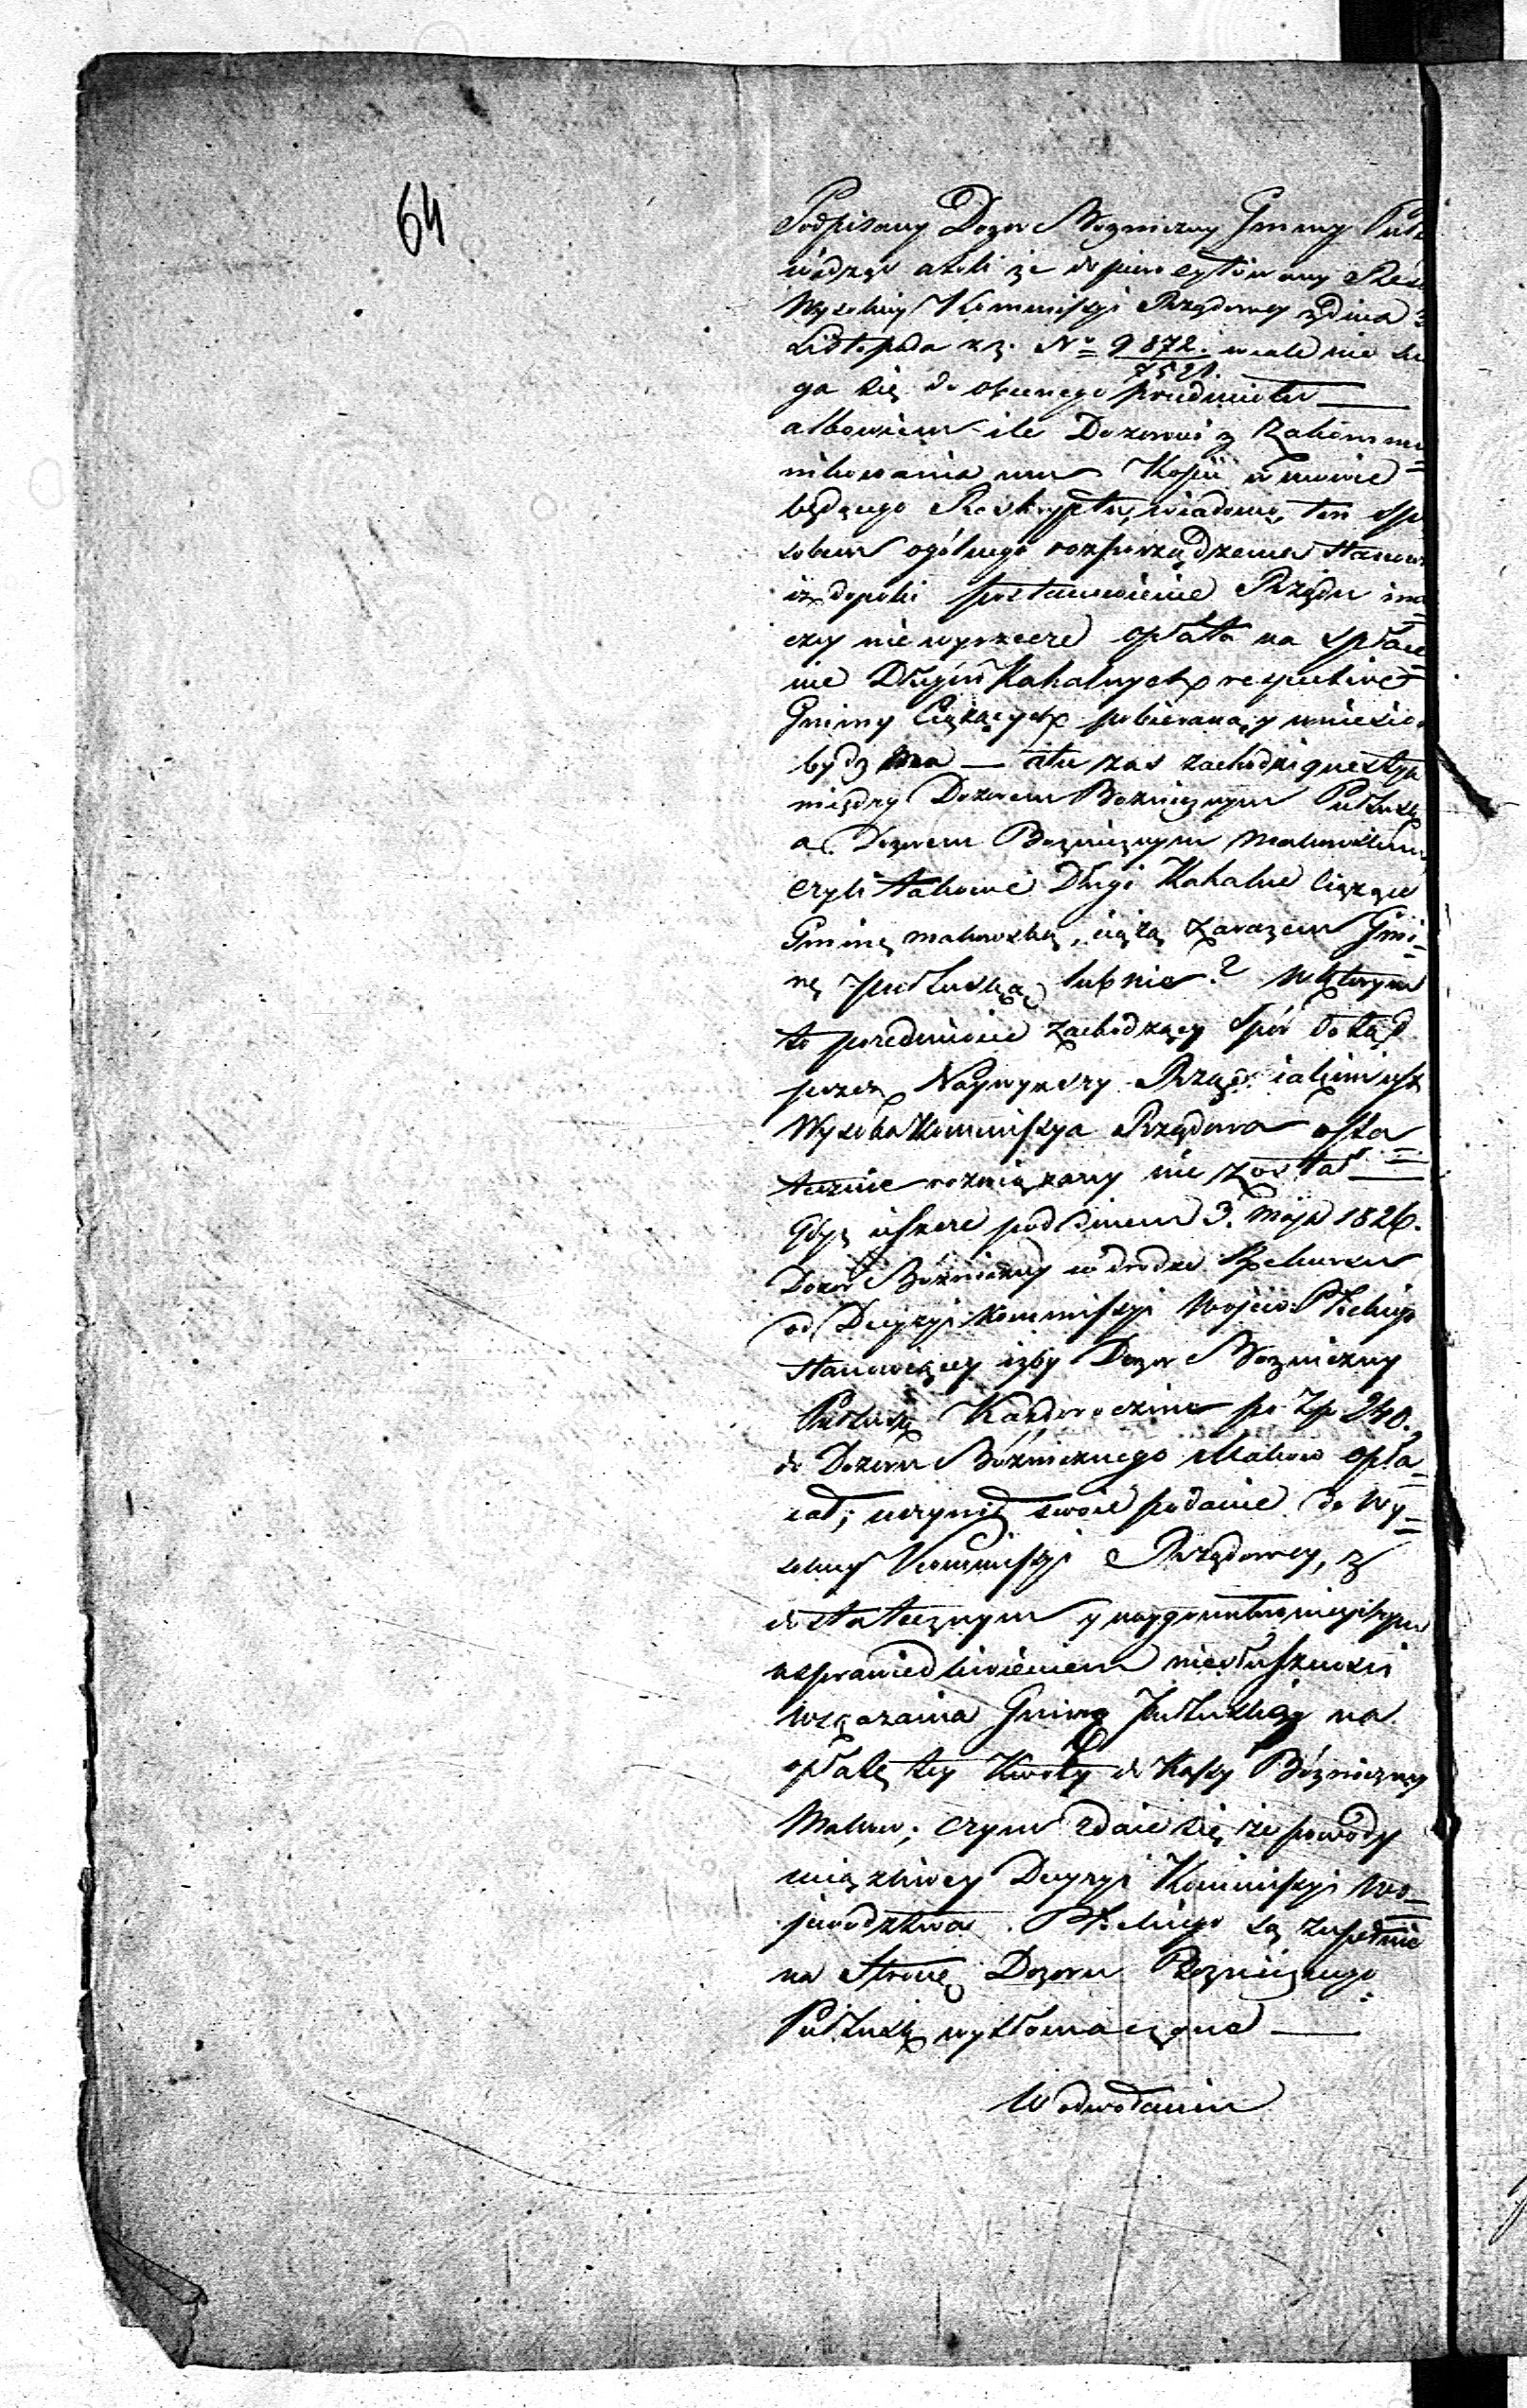 64
Podpisany Dozor Bozniczny Gminy Puł
widząc azeli że dopiero cytowany Res
Wysokiey Kommissyi Rządowey z dnia
Listopada r. z. No 9872./7521. wcale nie
ga się do obecnego przedmiotu —
albowiem ile Dozorowi z zakommu=
nikowania mu Kopii w mowie
będącego Reskryptu, wiadomo, ten spo
sobem ogólnego rozporządzenia stanowi
iż dopoki postanowienie Rządu ina=
czey nie wyrzecze opłata na spłace=
nie Długów Kahalnych respective
Gminy Ciążących pobieraną y wniesio
bydź ma — a tu zas zachodzi questya
między Dozorem Boznicznym Pułtusk
a Dozorem Boznicznym Makowskim
czyli takowe Długi Kahalne ciążące
Gminę makowską, ciążą zarazem Gmi=
nę pułtuską lub nie? w którym
to przedmiocie zachodzący spór dotąd
przez Naywyższy Rząd iakim iest
Wysoka Kommissya Rządowa osta=
tecznie rozwiązany nie został —
Gdyż ieszcze pod dniem 3. Maja 1826.
Dozor Bózniczny w drodze Rekursu
od Decyzyi Kommissyi Wojew: Płockiego
stanowiącey iżby Dozor Bozniczny
Pułtusk Kazdorocznie po Zp 240.
do Dozoru Bóżnicznego Makow opła=
cał; uczynił swoie podanie do Wy=
sokiey Kommissyi Rządowey, z
dostatecznym y naygruntownieyszym
usprawiedliwieniem niesłuszności
wskazania Gminy Pułtuskiey na
opłatę tey Kwoty do Kassy Bózniczney
Makow; czym zdaie się że powody
Decyzyi Kommissyi Wo=
jewództwa Płockiego są zupełnie
na stronę Dozoru Boznicznego
Pułtusk wytłomaczone —
W odwołaniu